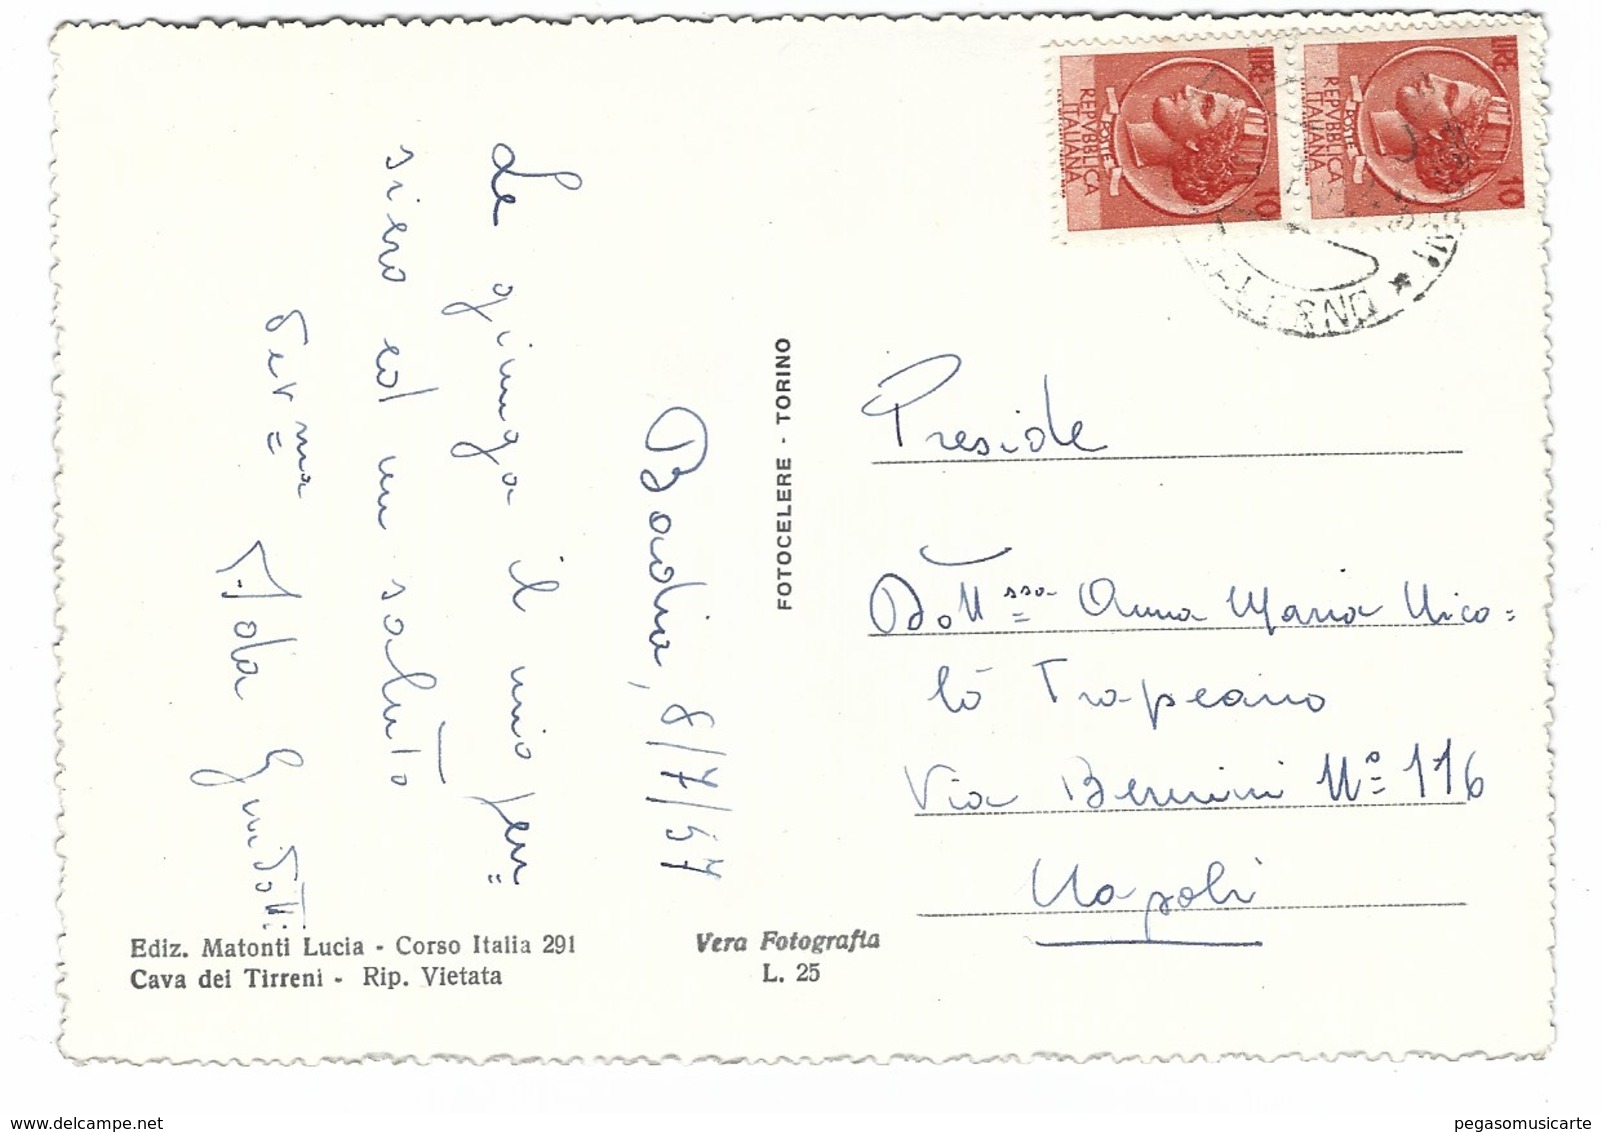 Badia, 8/7/57
Le giunga il mio pen=
siero ed un saluto
Dev.ma
Guidotti
FOTOCELERE - TORINO
Ediz. Matonti Lucia - Corso Italia 291
Cava dei Tirreni - Rip. Vietata
Vera Fotografia
L. 25
LIRE 10
POSTE
REPVBBLICA
ITALIANA
LIRE 10
POSTE
REPVBBLICA
ITALIANA
SALERNO
Preside
Dott.ssa Anna Maria Nico=
lò Trapeano
Via Bernini Nº 116
Napoli
pegasomusicarte